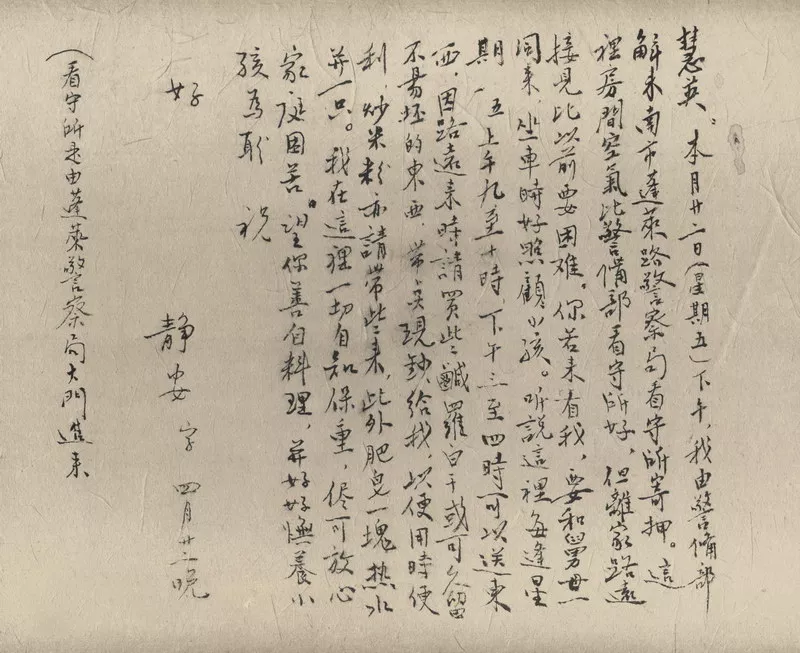 慧英。本月廿二日（星期五）下午，我由警備部
解来南市蓬萊路警察局看守所寄押。這
裡房間空氣比警備部看守所好，但離家路遠
接見比以前要困难。你若来看我，要和舅母
同来，坐車時好照顧小孩。听說這裡每逢星
期、五上午九至十時下午三至四時可以送東
西，因路遠来時請買些鹹羅白干或可久留
不易坯的東西，帶点現鈔給我，以便用時便
利，炒米粉亦請帶些来，此外肥皂一塊热水
并一只。我在這裡一切自知保重，儘可放心
家庭困苦。望你善自料理，并好好撫養小
孩為盼 祝
好
静安 字 四月廿二晚
（看守所是由蓬萊警察局大門進来